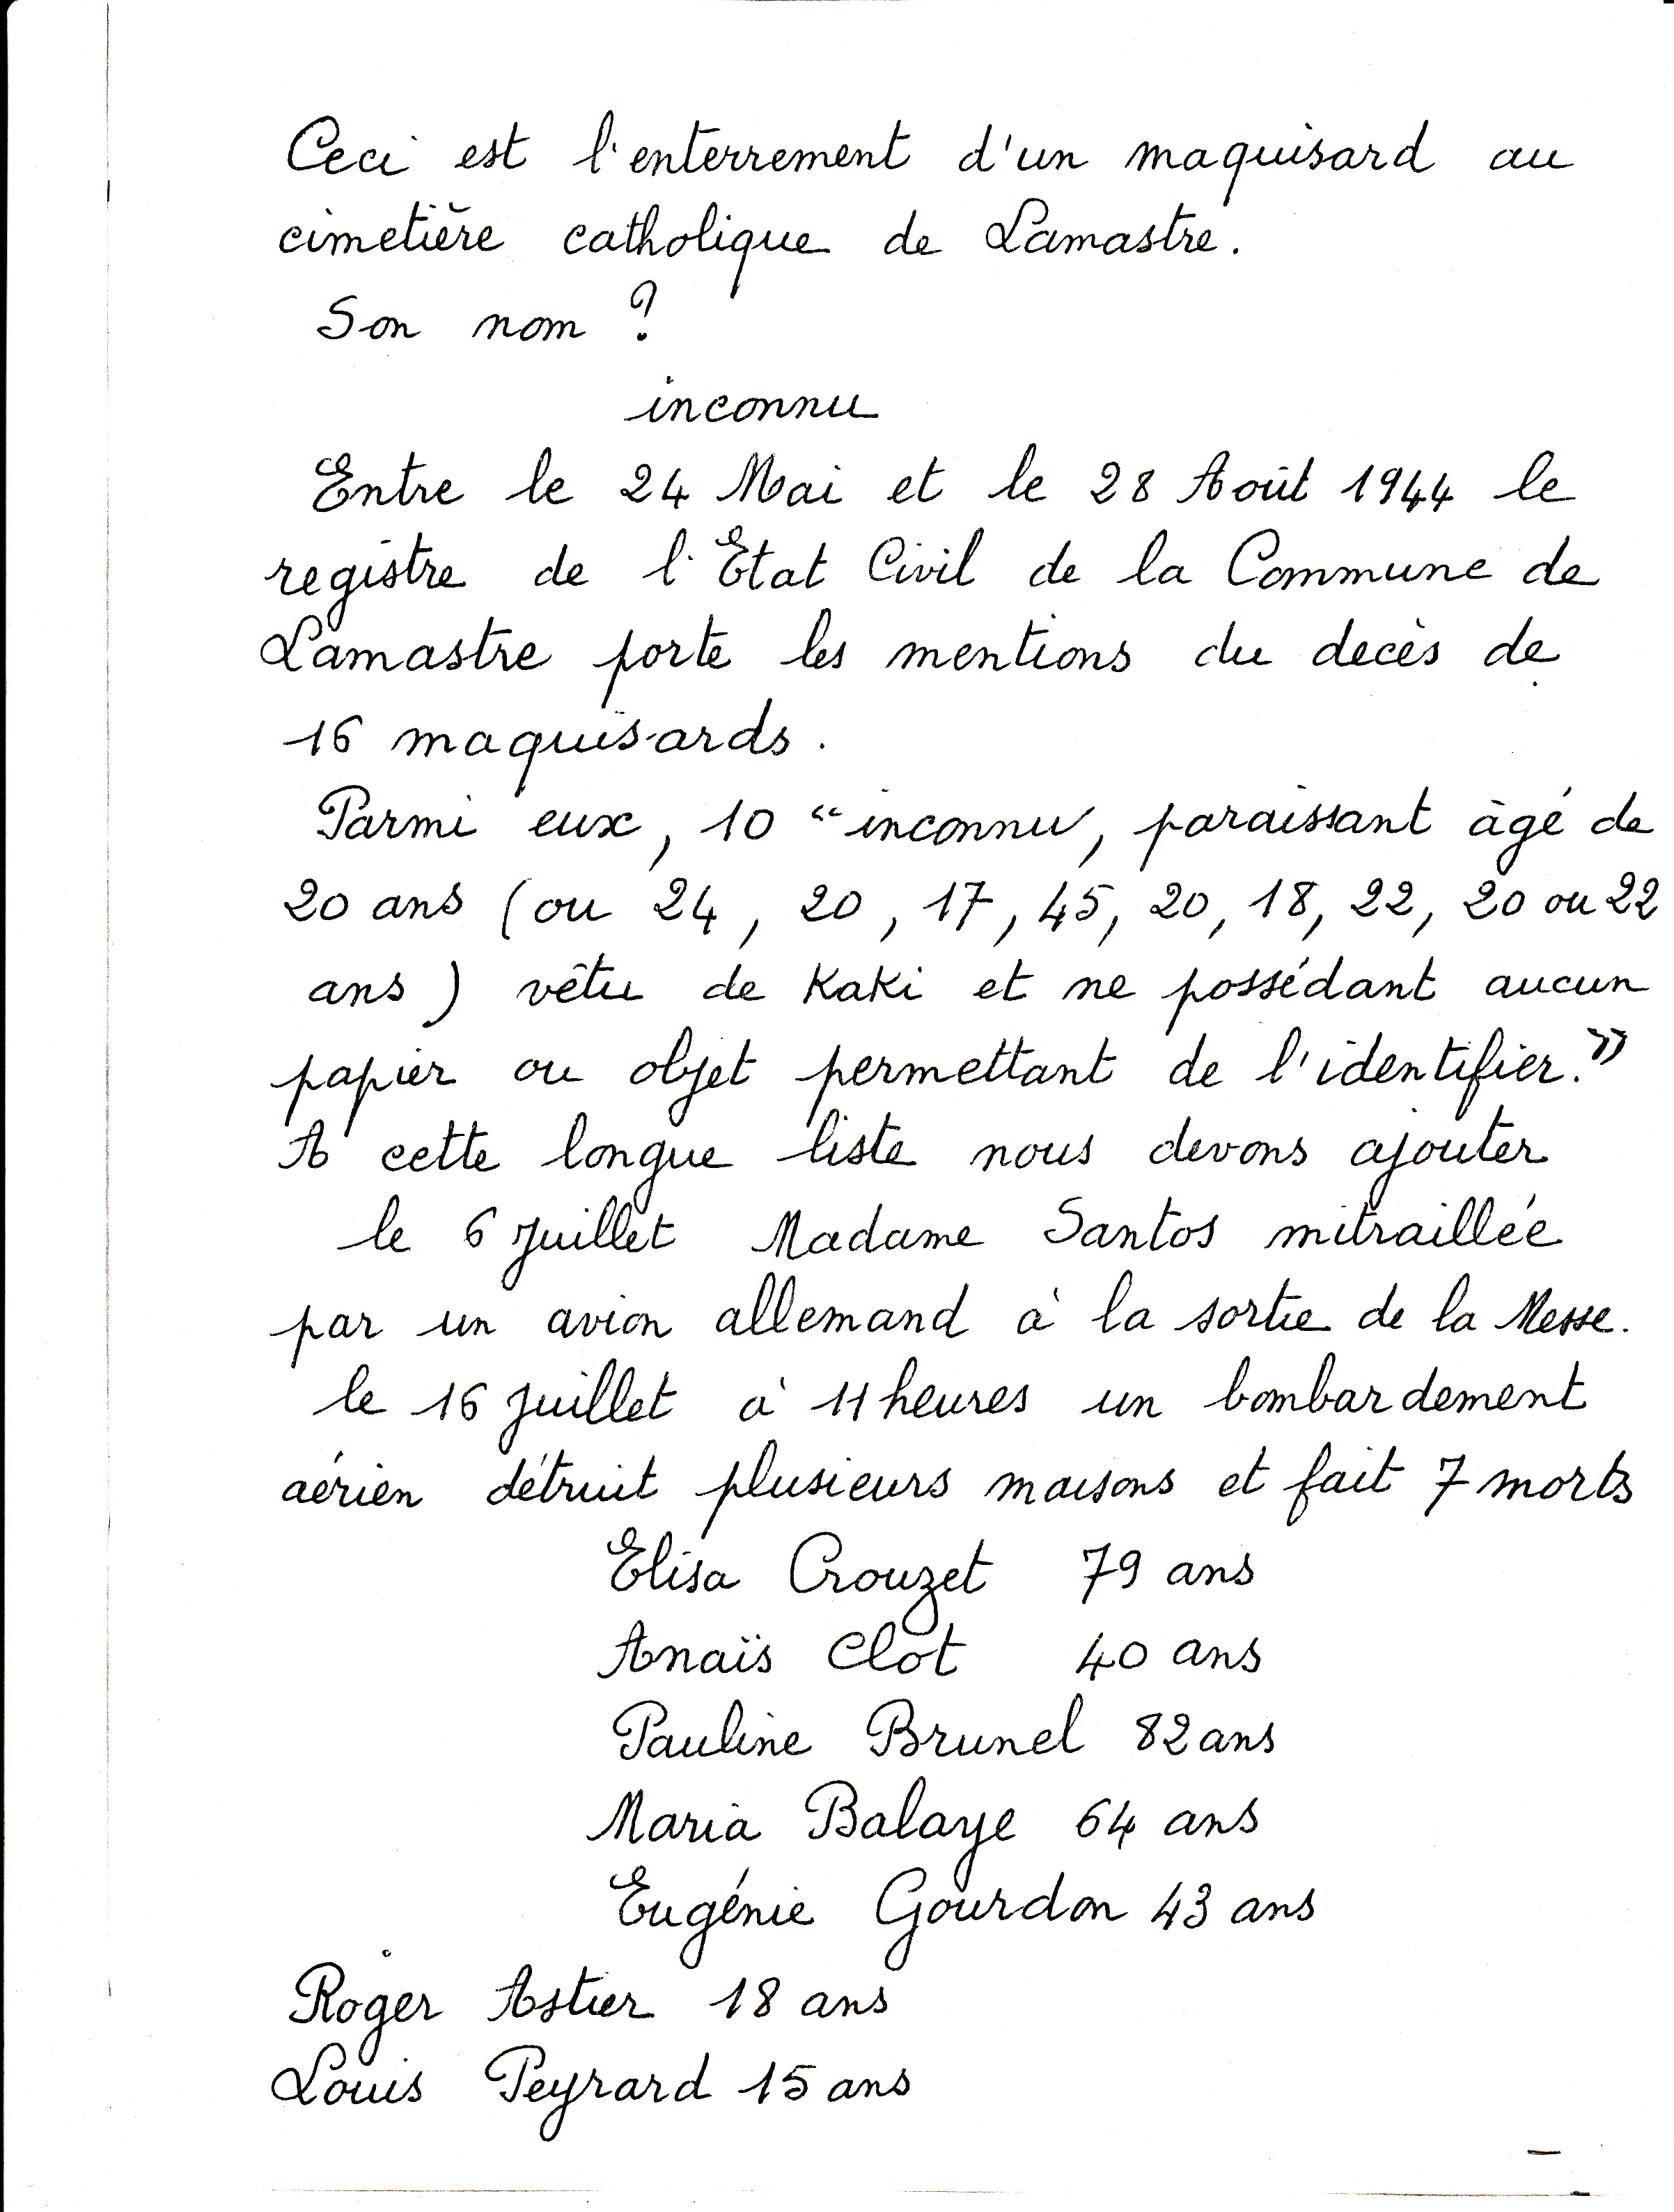 Ceci est l'enterrement d'un maquisard au
cimetière catholique de Lamastre.
Son nom ?
inconnu
Entre le 24 Mai et le 28 Août 1944 le
registre de l'Etat Civil de la Commune de
Lamastre porte les mentions du decès de
16 maquisards.
Parmi eux, 10 "inconnu, paraissant âgé de
20 ans (ou 24, 20, 17, 45, 20, 18, 22, 20 ou 22
ans) vêtu de Kaki et ne possédant aucun
papier ou objet permettant de l'identifier."
A cette longue liste nous devons ajouter
le 6 Juillet Madame Santos mitraillée
par un avion allemand à la sortie de la Messe.
le 16 Juillet à 11 heures un bombardement
aérien détruit plusieurs maisons et fait 7 morts
Elisa Crouzet 79 ans
Anaïs Clot 40 ans
Pauline Brunel 82 ans
Maria Balaye 64 ans
Eugénie Gourdon 43 ans
Roger Astier 18 ans
Louis Peyrard 15 ans